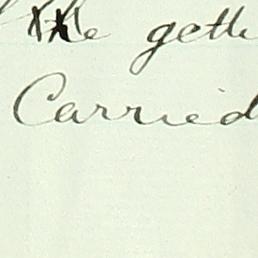 the geth
Carried